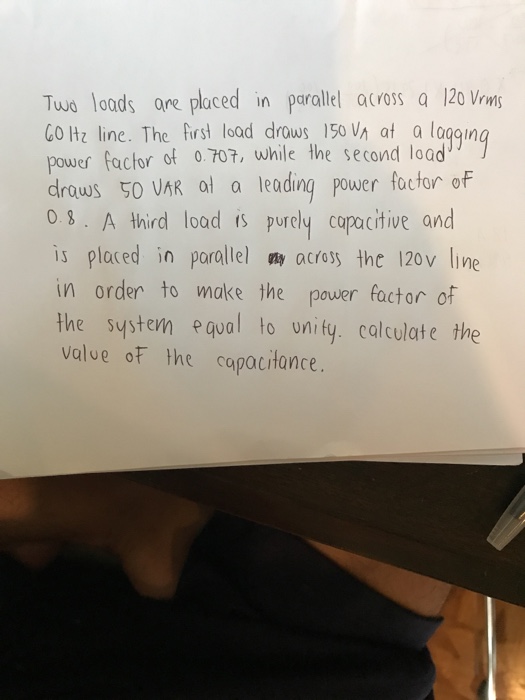 Two loads are placed in parallel across a 120 Vrms
60 Hz line. The first load draws 150 VA at a lagging
power factor of 0.707, while the second load
draws 50 VAR at a leading power factor of
0.8. A third load is purely capacitive and
is placed in parallel across the 120v line
in order to make the power factor of
the system equal to unity. calculate the
value of the capacitance.